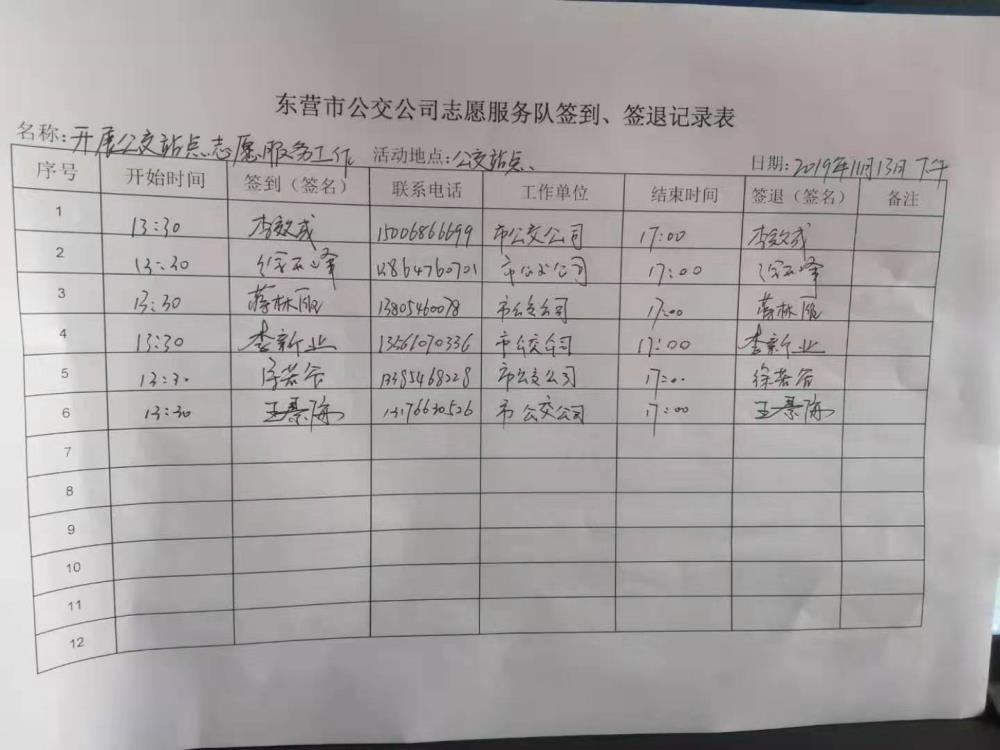 东营市公交公司志愿服务队签到、签退记录表
名称：开展公交站点志愿服务工作 活动地点：公交站点、 日期：2019年11月13日下午
序号 开始时间 签到（签名） 联系电话 工作单位 结束时间 签退（签名） 备注
1 13:30 李效成 15006866699 市公交公司 17:00 李效成
2 13:30 峰 市公交公司 17:00 峰
3 13:30 蒋林丽 13805460078 市公交公司 17:00 蒋林丽
4 13:30 李新业 13561070336 市公交公司 17:00 李新业
5 13:30 市公交公司 17:00
6 13:30 王綦海 13176630526 市公交公司 17:00 王綦海
7
8
9
10
11
12